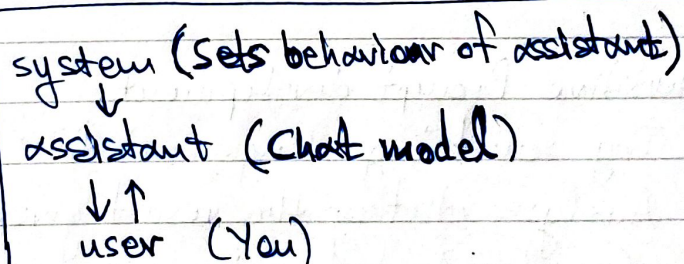 system (Sets behaviour of assistant)
↓
assistant (Chat model)
↓↑
user (You)